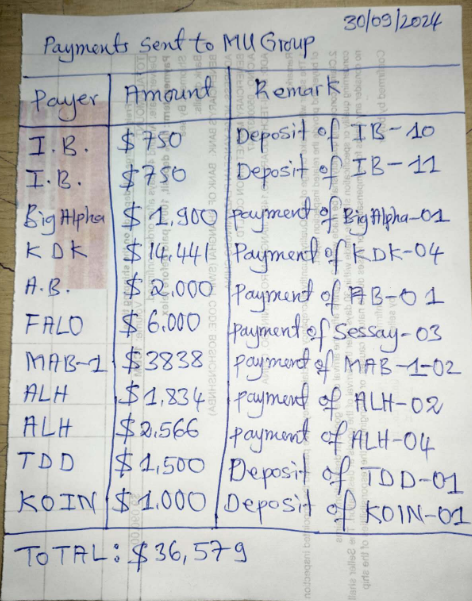 30/09/2024
Payments Sent to MU Group
Payer Amount Remark
I.B. $750 Deposit of IB-10
I.B. $750 Deposit of IB-11
Big Alpha $1,900 payment of Big Alpha-01
KDK $14,441 Payment of KDK-04
A.B. $2,000 Payment of AB-01
FALO $6,000 Payment of Sessay-03
MAB-1 $3838 payment of MAB-1-02
ALH $1,834 payment of ALH-02
ALH $2,566 payment of ALH-04
TDD $1,500 Deposit of TDD-01
KOIN $1,000 Deposit of KOIN-01
TOTAL: $36,579